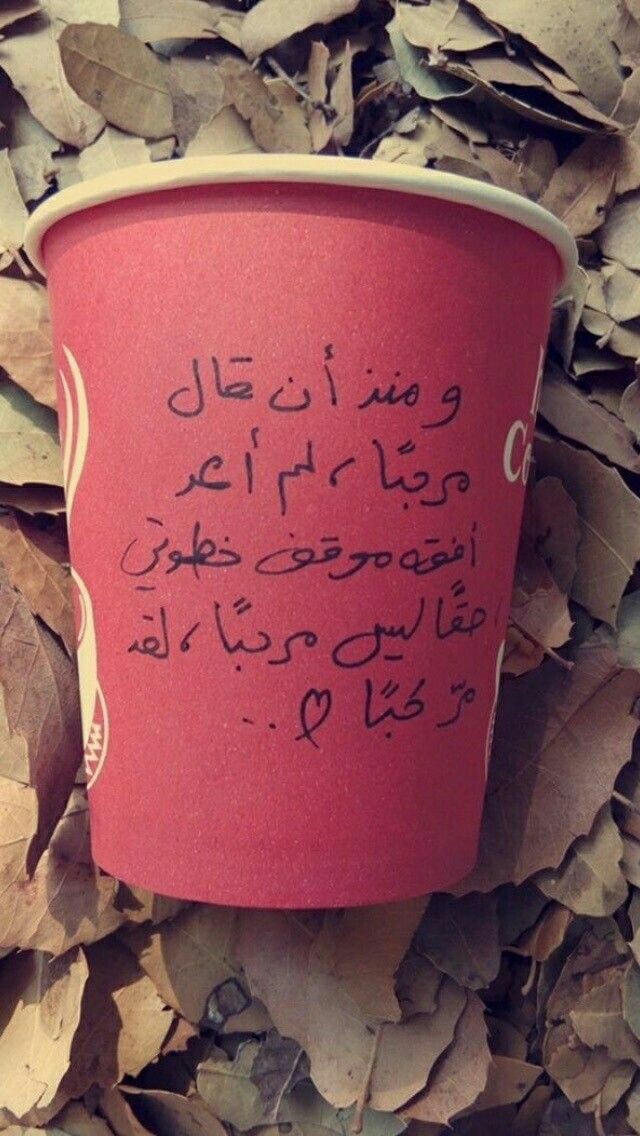 ومنذ أن قال
مرحبًا، لم أعد
أفقه موقف خطوتي
احقًا ليس مرحبًا، لقد
مرّ حُبًا ♡..
Co